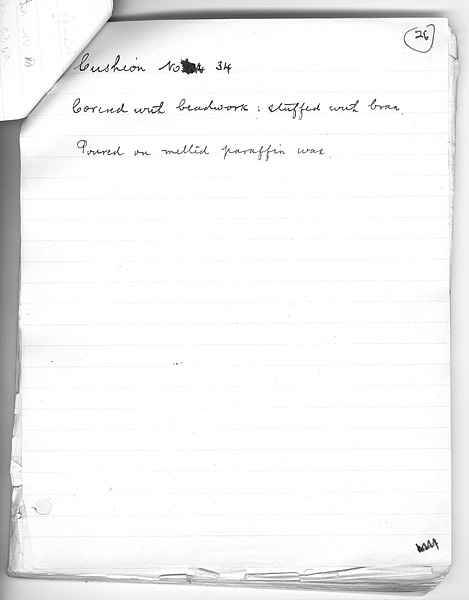 26
Cushion No 34
Covered with beadwork : stuffed with bran.
Poured on melted paraffin wax.